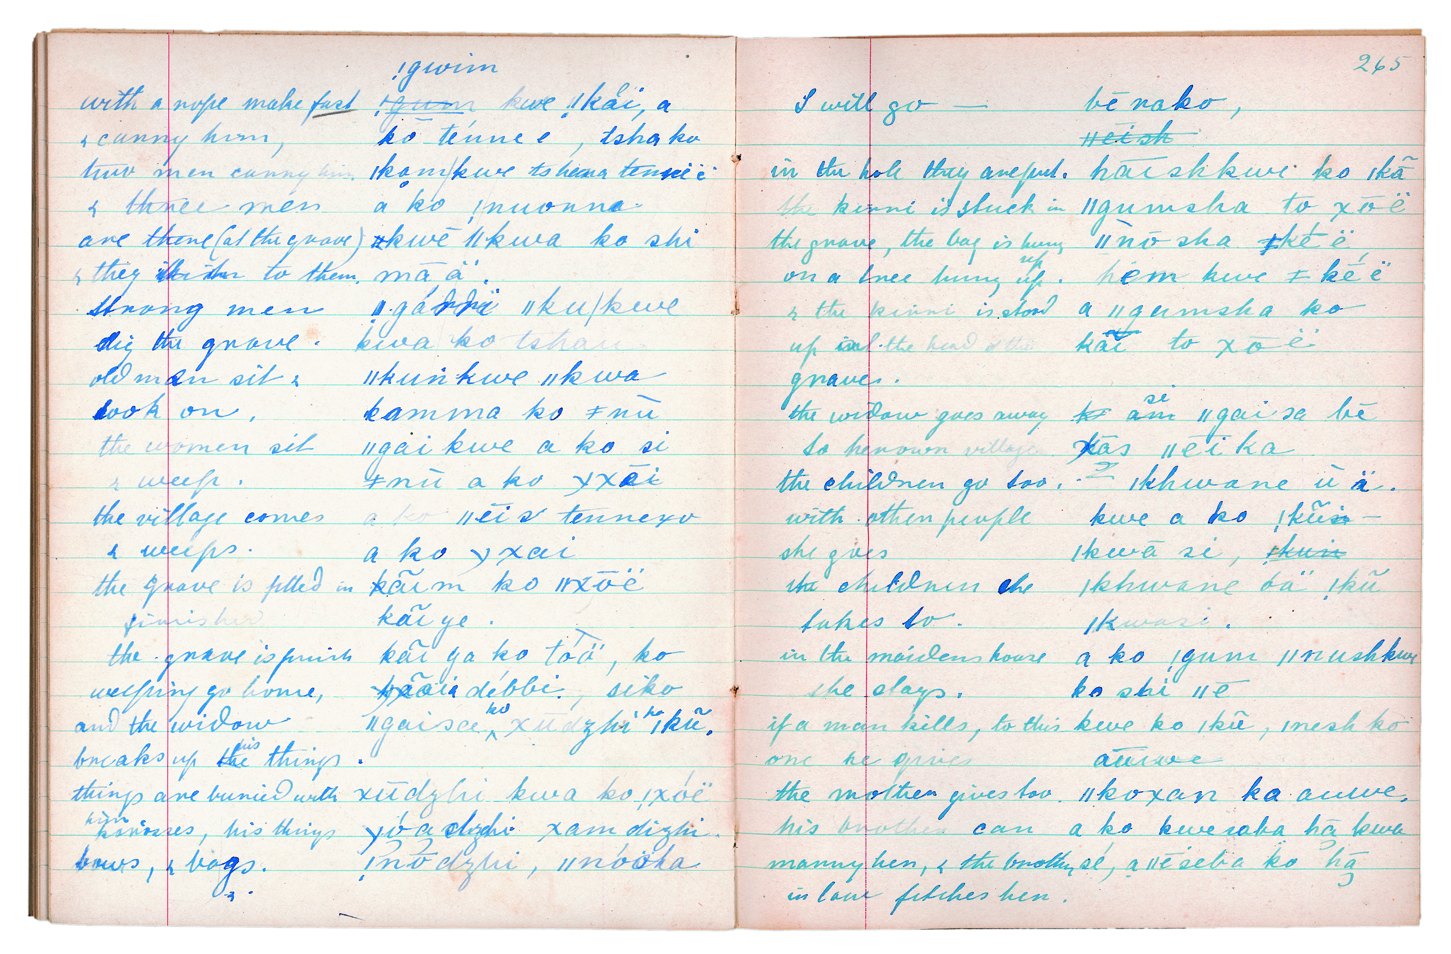 !gwim
with a rope make fast !gum kwe ǁkãi, a
& carry him, kō tennee, tshako
two men carry him. ǀkam/kwe tshana tenneë
& three men a ko !nuonna
are there (at the grave) ǂkwē ǁkwa ko shi
& they to them. māä.
strong men ǁgárri ǁku/kwe
dig the grave. kwa ko tshau
old men sit & ǁkuṅkwe ǁkwa
look on. kamma ko ǂnū
the women sit ǁgaikwe a ko si
& weep. ǂnū a ko xãi
the village comes a ko ǁēis tennexo
& weeps. a ko xai
the grave is filled in kãim ko ǁxōë
finished kãiye.
the grave is finish kãi ya ko tōä, ko
weeping go home, débbi, siko
and the widow ǁgaisa ko xūdzhi ǀkũ.
breaks up the his things.
things are buried with xūdzhi kwa ko !xóë
him kirosses, his things xamdizhi.
bows, & bags. !nōdzhi, ǁnōōha
265
I will go — bē nako,
ǁēish
in the hole they are put. haishkwe ko ǀkã
the kirri is stuck in ǁgumsha to xōë
the grave, the bag is hung ǁnōsha ǂkéë
on a tree hung up up. hēm kwe ǂkéë
& the kirri is stood a ǁgumsha ko
up in the head of the kãi to xōë
graves.
the widow goes away am se ǁgaisa bē
to her own village xãs ǁēika
the children go too. ǀkhwane ū ä.
with other people kwe a ko !kũi—
she gives ǀkwā si, !kũi
the children she ǀkhwane óä !kũ
takes to. ǀkwasi.
in the maidens house a ko !gum ǁnushkwe
she stays. ko shi ǁē
if a man kills, to this kwe ko ǀkũ, ǀnesh ko
one he gives auwe
the mother gives too. ǁkoxan ka auwe.
his brother can a ko kwesaba hã kwa
marry her, & the brother sé, a ǁéseba ko hã
in law fetches her.